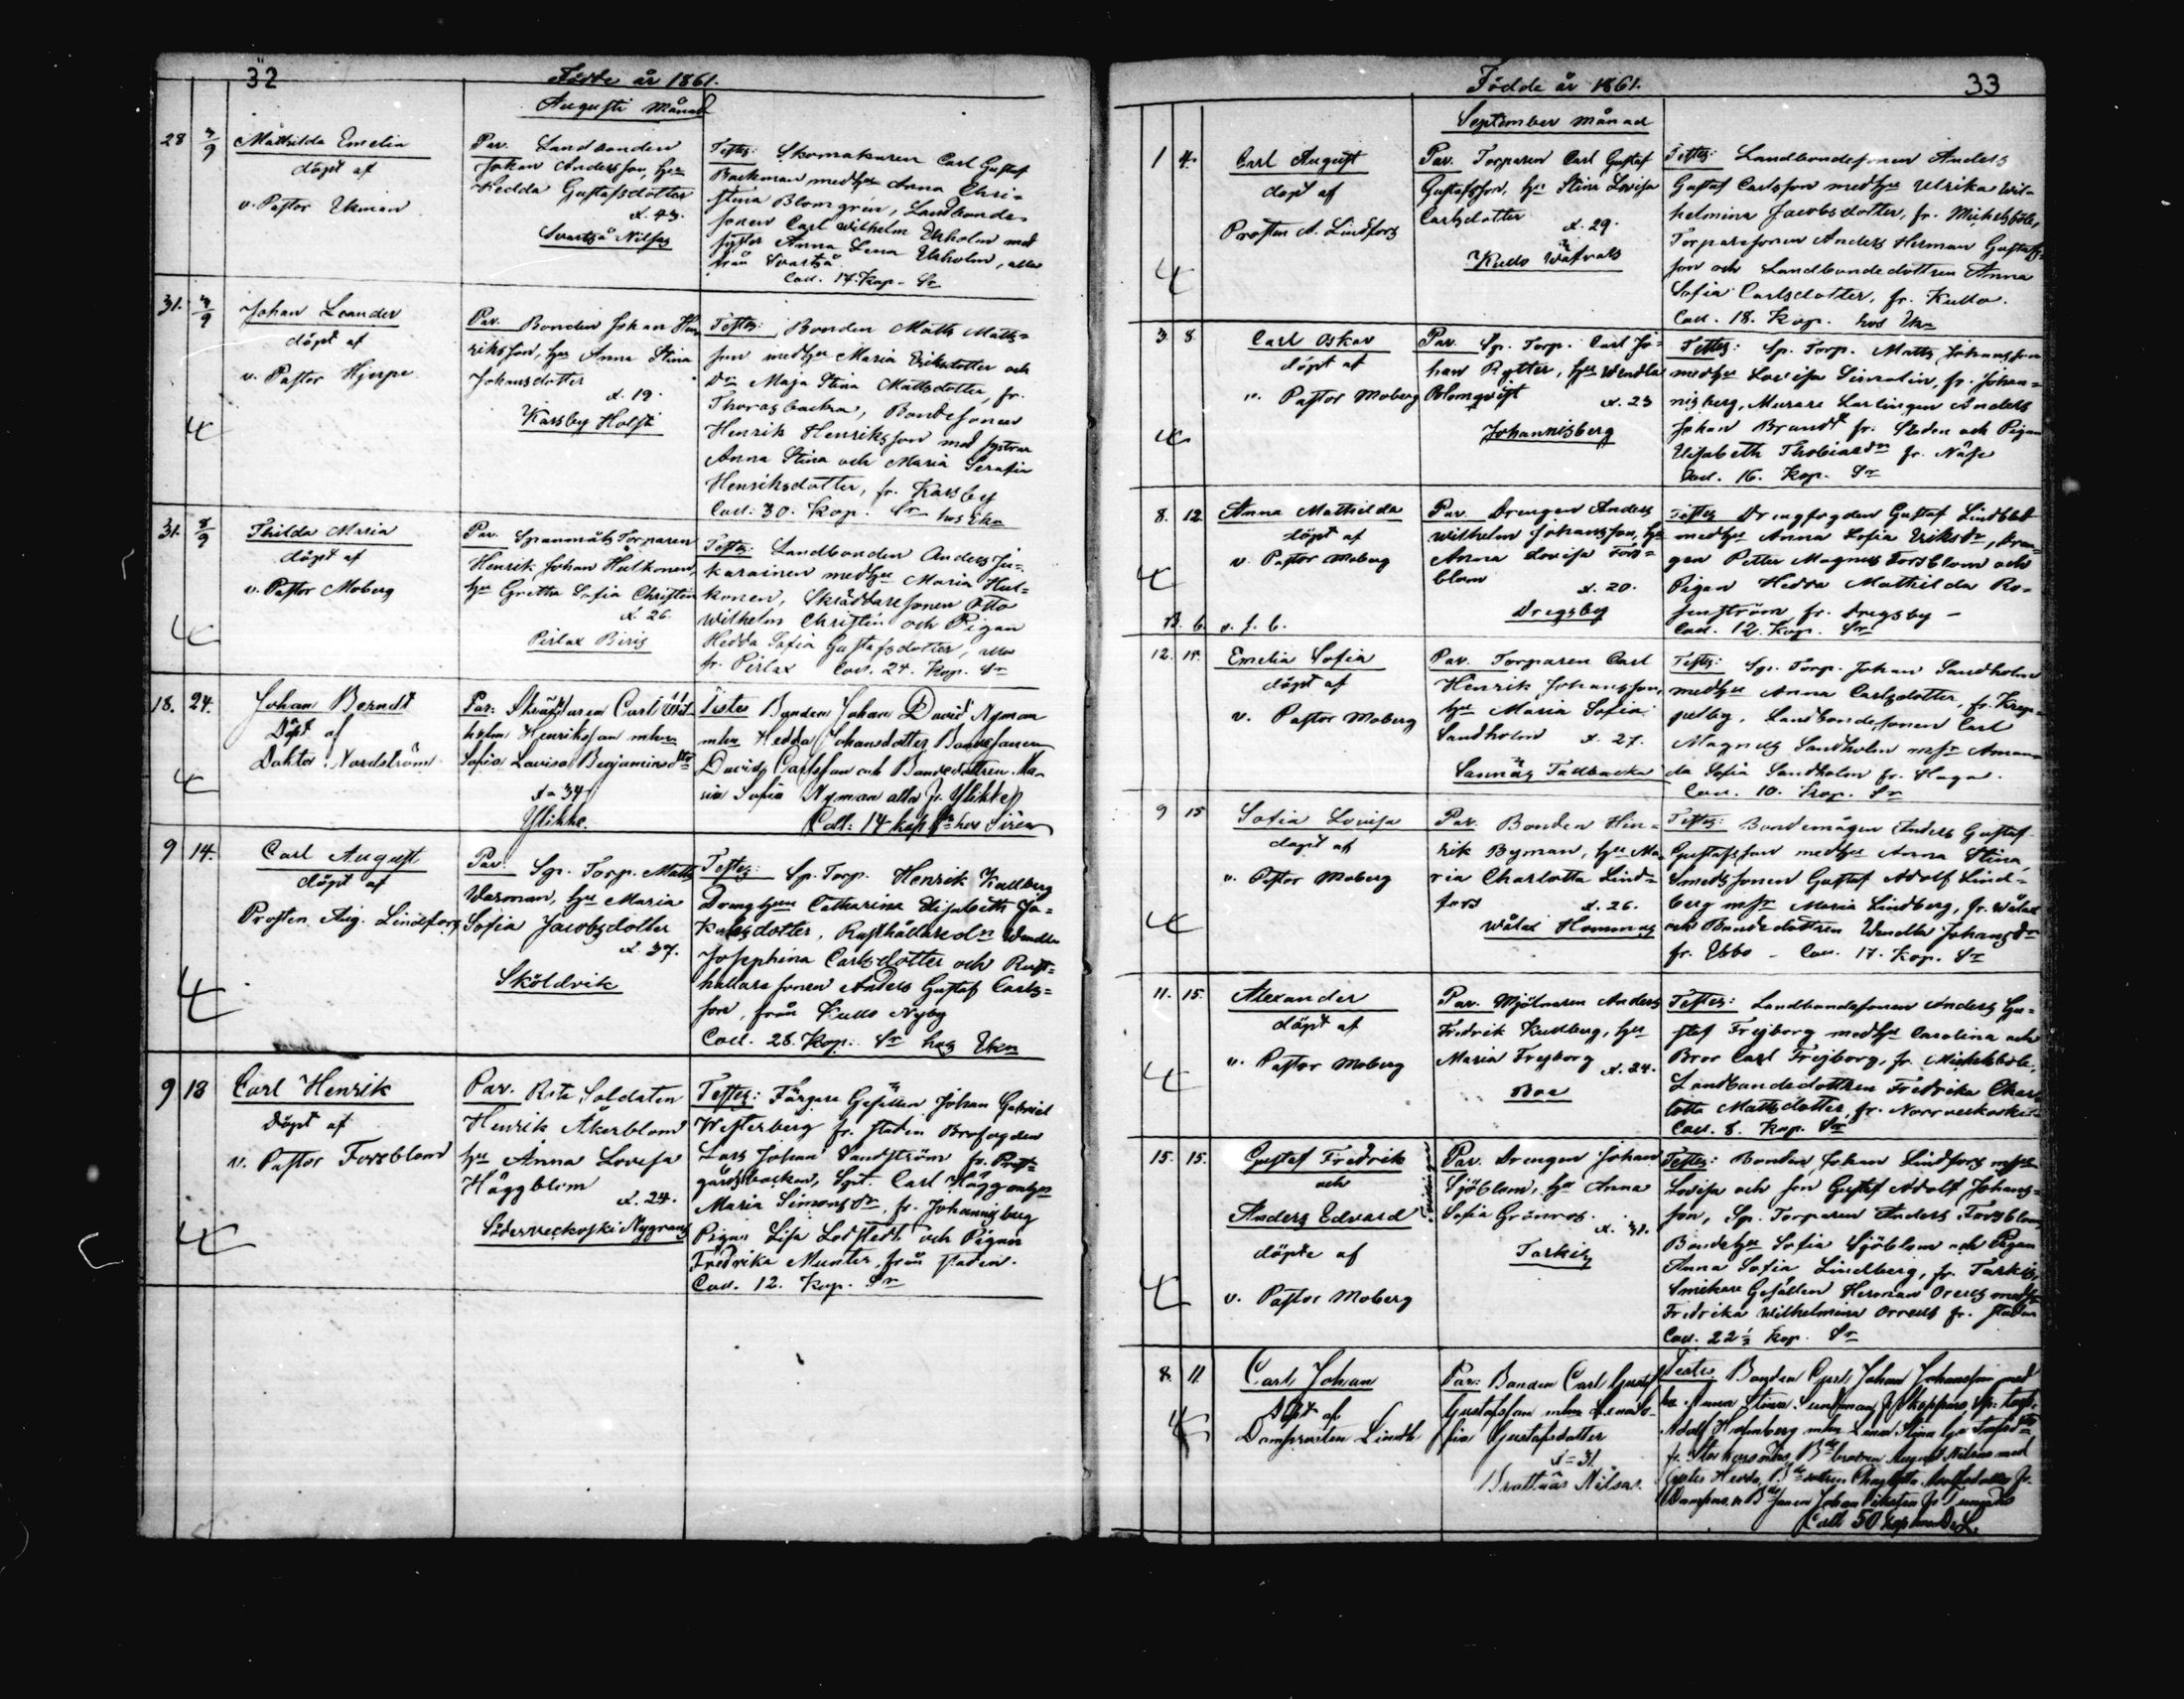 32
Födde år 1861.
Augusti månad
28 3/9
Mathilda Emelia
döpt af
v. Pastor Ekman
Par. Landbonden
Johan Andersson, hu
Hedda Gustafsdotter
d. 43.
Svartså Nilsas
Testes: Skomakaren Carl Gustaf
Backman medhu Anna Chri-
stina Blomgrén, Landbonde-
sonen Carl Wilhelm Ekholm med
syster Anna Lena Ekholm, alla
från Svartså
Coll. 17. Kop. Sr
31. 3/9
Johan Leander
döpt af
v. Pastor Hjerpe
Par. Bonden Johan Hen
riksson, hu Anna Stina
Johansdotter
d. 19.
Karsby Holsti
Testes: Bonden Matts Matts=
son medhu Maria Eriksdotter och
Drn Maja Stina Mattsdotter, fr.
Thorasbacka, Bondesonen
Henrik Henriksson med systrar
Anna Stina och Maria Serafia
Henriksdotter, fr. Karsby
Coll: 30. Kop. Sr hos Ekn
31. 8/9
Thilda Maria
döpt af
v. Pastor Moberg
Par. Spanmåls Torparen
Henrik Johan Hulkonen,
hu Gretha Sofia Christin
d. 26.
Pirlax Biris
Testes: Landbonden Anders Ju-
karainen medhu Maria Hul-
konen, Skräddaresonen Otto
Wilhelm Christén och Pigan
Hedda Sofia Gustafsdotter, alla
fr. Pirlax Coll. 24. Kop. Sr
18. 24.
Johan Berndt
Döpt af
Doktor Nordström
Par: Skräddaren Carl Wil-
helm Henriksson mhu
Sofia Lovisa Benjaminsdtr
d= 34
Ylikke.
Testes Bonden Johan David Nyman
mhu Hedda Johansdotter, Bondesonen
David Carlsson och Bondedottren Ma-
ria Sofia Nyman alla fr. Ylikke
Coll: 14 kop Sr hos Sirén
9 14.
Carl August
döpt af
Prosten Aug. Lindfors
Par. Sp. Torp. Matts
Warman, hu Maria
Sofia Jacobsdotter
d. 37.
Sköldvik
Testes: Sp. Torp. Henrik Kullberg
Drenghun Catharina Elisabeth Ja=
kobsdotter, Rusthållaredn Wendla
Josephina Carlsdotter och Rust=
hållaresonen Anders Gustaf Carls=
son, från Kullo Nyby
Coll. 28. Kop. Sr hos Ekn
9 13
Carl Henrik
döpt af
v. Pastor Forsblom
Par. Rote Soldaten
Henrik Åkerblom
hu Anna Lovisa
Häggblom
d. 24.
Söderveckoski Nygrans
Testes: Färgare Gesellen Johan Gabriel
Westerberg fr. staden Brofogden
Lars Johan Sandström fr. Prost=
gårdsbacken, Sgt. Carl Hägg mhu
Maria Simonsdr, fr. Johannisberg
Pigan Lisa Lodstedt och Pigan
Fredrika Munter, från staden.
Coll. 12. Kop. Sr
Födde år 1861.
33
September månad
1 4.
Carl August
döpt af
Prosten A. Lindfors
Par. Torparen Carl Gustaf
Gustafsson, hu Stina Lovisa
Carlsdotter
d. 29.
Kullo Wäfvars
Testes: Landbondesonen Anders
Gustaf Carlsson medhu Ulrika Wil-
helmina Jacobsdotter, fr. Mickelsböle,
Torparesonen Anders Herman Gustafs=
son och Landbondedottren Anna
Sofia Carlsdotter, fr. Kullo.
Coll. 18. Kop. hos Ekn
3 8
Carl Oskar
döpt af
v. Pastor Moberg
Par. Sp. Torp. Carl Jo=
han Rytter, hu Wendla
Blomqvist
d. 23
Johannisberg
Testes: Sp. Torp. Matts Johansson
medhu Lovisa Simolin, fr. Johan=
nisberg, Murare Lärlingen Anders
Johan Brandt fr. Staden och Pigan
Elisabeth Thobiasdr fr. Näse
Coll. 16. Kop. Sr
8. 12
Anna Mathilda
döpt af
v. Pastor Moberg
v. s. b.
Par. Drengen Anders
Wilhelm Johansson, hu
Anna Lovisa Fors=
blom
d. 20.
Dregsby
Testes Drengfogden Gustaf Lindblad
medhu Anna Sofia Eriksdr, Dren-
gen Petter Magnus Forsblom och
Pigan Hedda Mathilda Ro-
senström fr. Dregsby -
Coll. 12. Kop. Sr
12. 15.
Emelia Sofia
döpt af
v. Pastor Moberg
Par. Torparen Carl
Henrik Johansson,
hu Maria Sofia
Sandholm d. 27.
Sannäs Tadbacka
Testes: Sp. Torp. Johan Sandholm
medhu Anna Carlsdotter, fr. Krep-
pelby, Landbondesonen Carl
Magnus Sandholm msr Aman
da Sofia Sandholm fr. Haga.
Coll. 10. Kop. Sr
9 15
Sofia Lovisa
döpt af
v. Pastor Moberg
Par. Bonden Hin=
rik Byman, hu Ma
ria Charlotta Lind=
fors
d. 26.
Wålax Hommas
Testes: Bondemågen Anders Gustaf
Gustafsson medhu Anna Stina
Smedssonen Gustaf Adolf Lind=
berg msr Maria Lindberg, fr. Wålax
och Bondedottren Wendla Johansdr
fr. Ebbo - Coll. 17. Kop. Sr
11. 15.
Alexander
döpt af
v. Pastor Moberg
Par. Mjölnaren Anders
Fredrik Kullberg, hu
Maria Frejborg
d. 24.
Boe
Testes: Landbondesonen Anders Gu=
staf Frejborg medhu Carolina och
Bror Carl Frejborg, fr. Mickelsböle,
Landbondedottren Fredrika Char
lotta Mattsdotter, fr. Norrveckoski
Coll. 8. Kop. Sr
15. 15.
Gustaf Fredrik
och
Anders Edvard
Tvillingar
döpte af
v. Pastor Moberg
Par. Drengen Johan
Sjöblom, hu Anna
Sofia Grönroos
Tarkis
Testes: Bonden Johan Lindfors mhu
Lovisa och son Gustaf Adolf Johans=
son, Sp. Torparen Anders Forsblom
Bondehu Sofia Sjöblom och Pigan
Anna Sofia Lindberg, fr. Tarkis,
Snickare Gesällen Herman Orreus medhu
Fredrika Wilhelmina Orreus fr. staden
Coll. 22½ Kop. Sr
8. 11.
Carl Johan
döpt af
Domprosten Lindh
Par: Bonden Carl Gustaf
Gustafsson mhu Lena So-
fia Gustafsdotter
d= 31
Brattnäs Nilsas.
Testes. Bonden Carl Johan Johansson med
hu Anna Stina
Adolf Holmberg mhu Lena Stina
Coll 50 kop